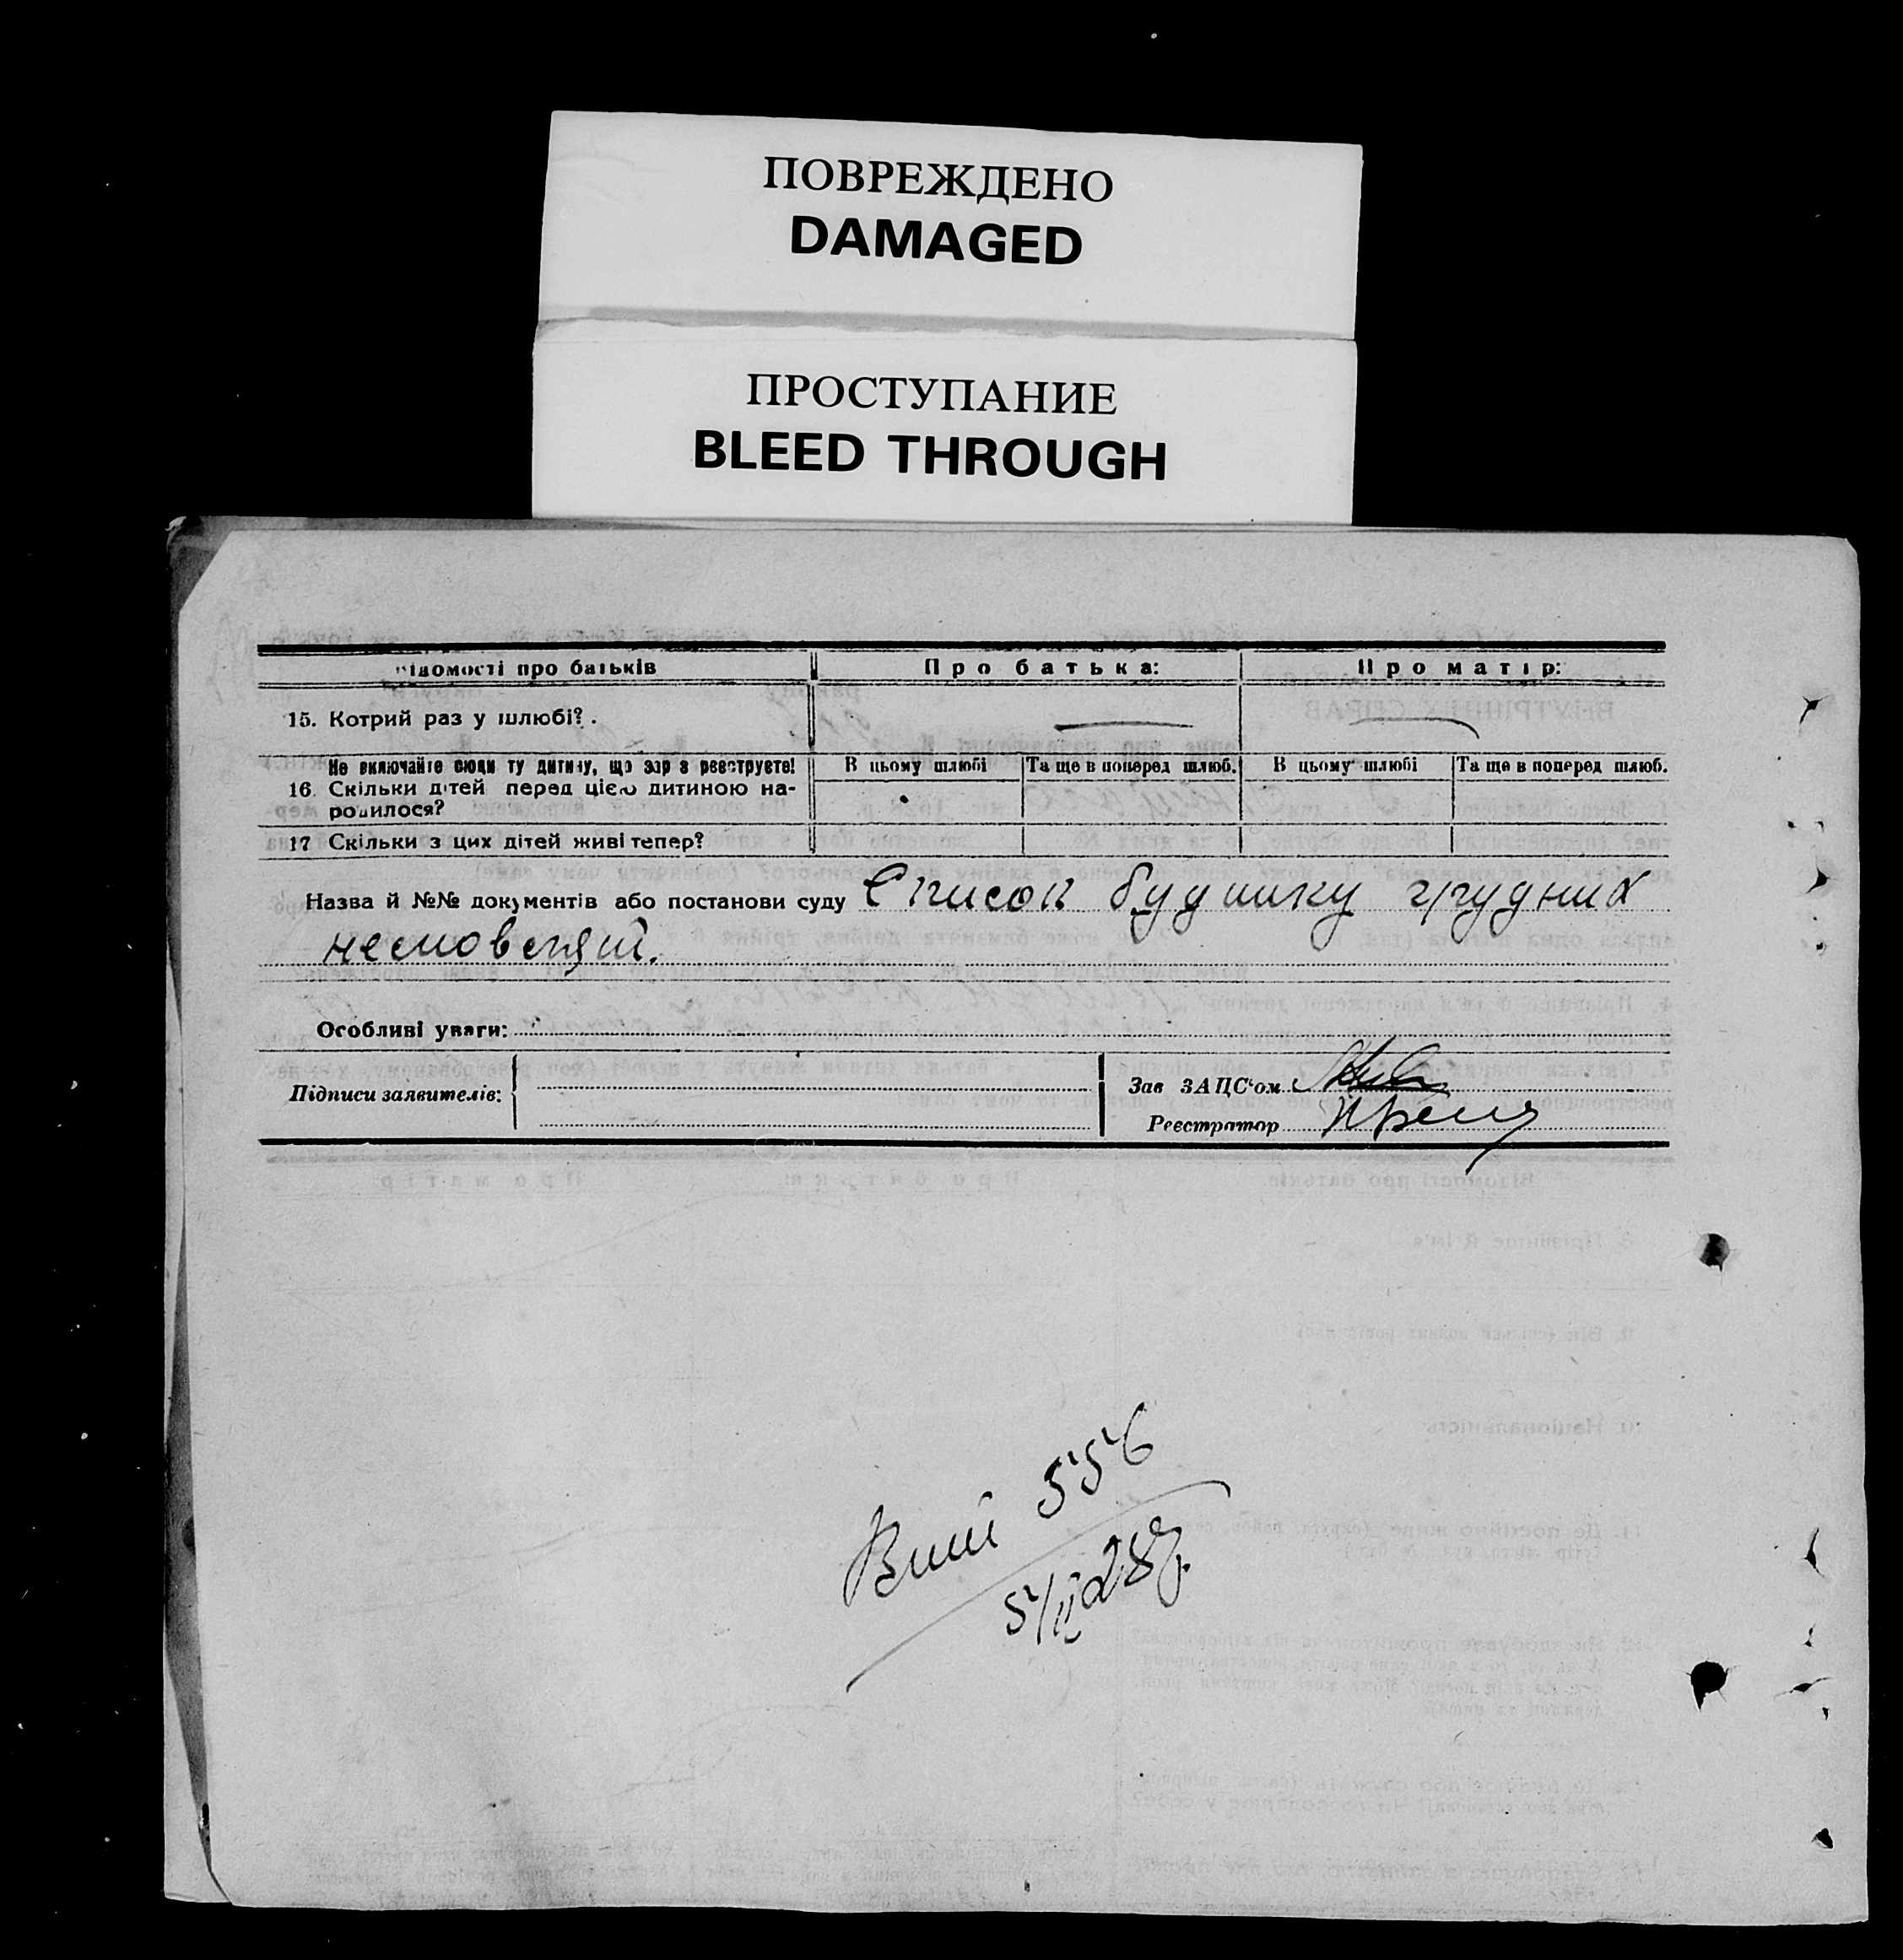 ПОВРЕЖДЕНО
DAMAGED
ПРОСТУПАНИЕ
BLEED THROUGH
Відомості про батьків
Про батька:
Про матір:
15. Котрий раз у шлюбі?
Не включайте сюди ту дитину, що зараз реєструєте!
В цьому шлюбі
Та ще в поперед шлюб.
В цьому шлюбі
Та ще в поперед шлюб.
16. Скільки дітей перед цією дитиною на-
родилося?
17 Скільки з цих дітей живі тепер?
Назва й №№ документів або постанови суду Список будинку грудних
немовлят.
Особливі уваги:
Підписи заявителів:
Зав ЗАЦС'ом
Реєстратор
556
5/II 28р.